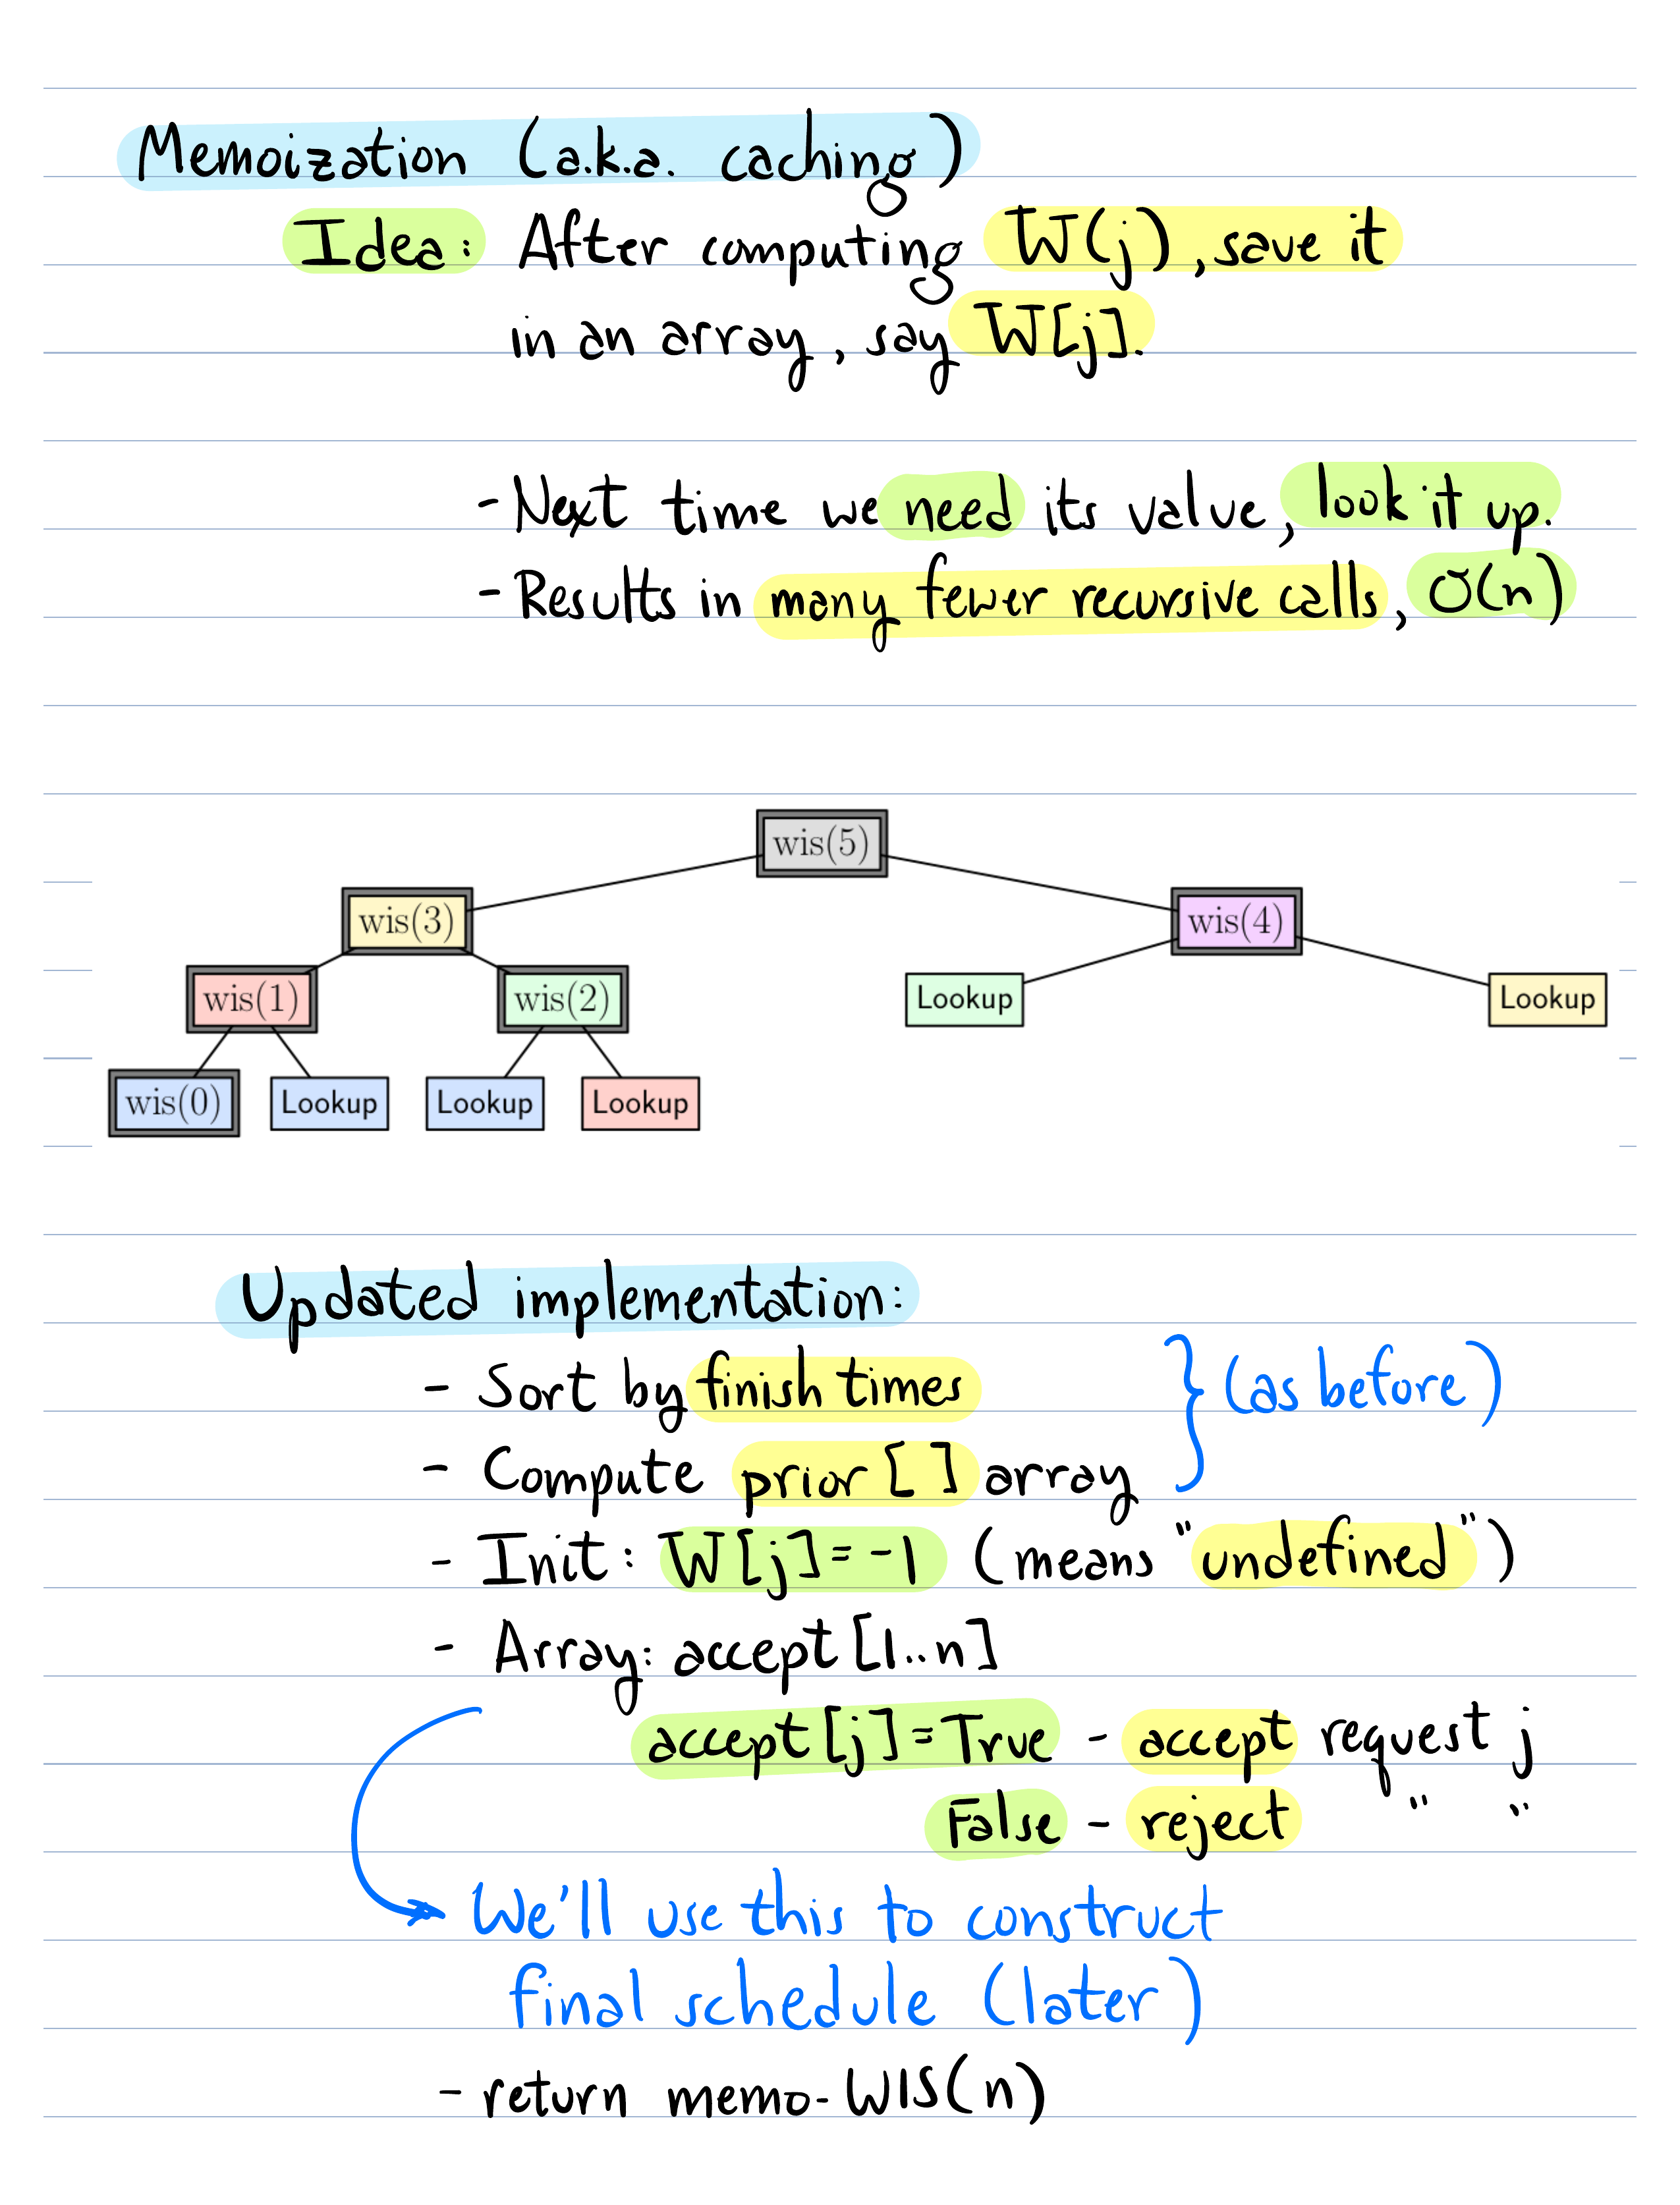 Memoization (a.k.a. caching)
Idea: After computing W(j), save it
in an array, say W[j].
- Next time we need its value, look it up.
- Results in many fewer recursive calls, O(n)
wis(5)
wis(3) wis(4)
wis(1) wis(2) Lookup Lookup
wis(0) Lookup Lookup Lookup
Updated implementation:
- Sort by finish times } (as before)
- Compute prior[ ] array
- Init: W[j]=-1 (means "undefined")
- Array: accept[1..n]
accept[j]=True - accept request j
False - reject " "
We'll use this to construct
final schedule (later)
- return memo-WIS(n)